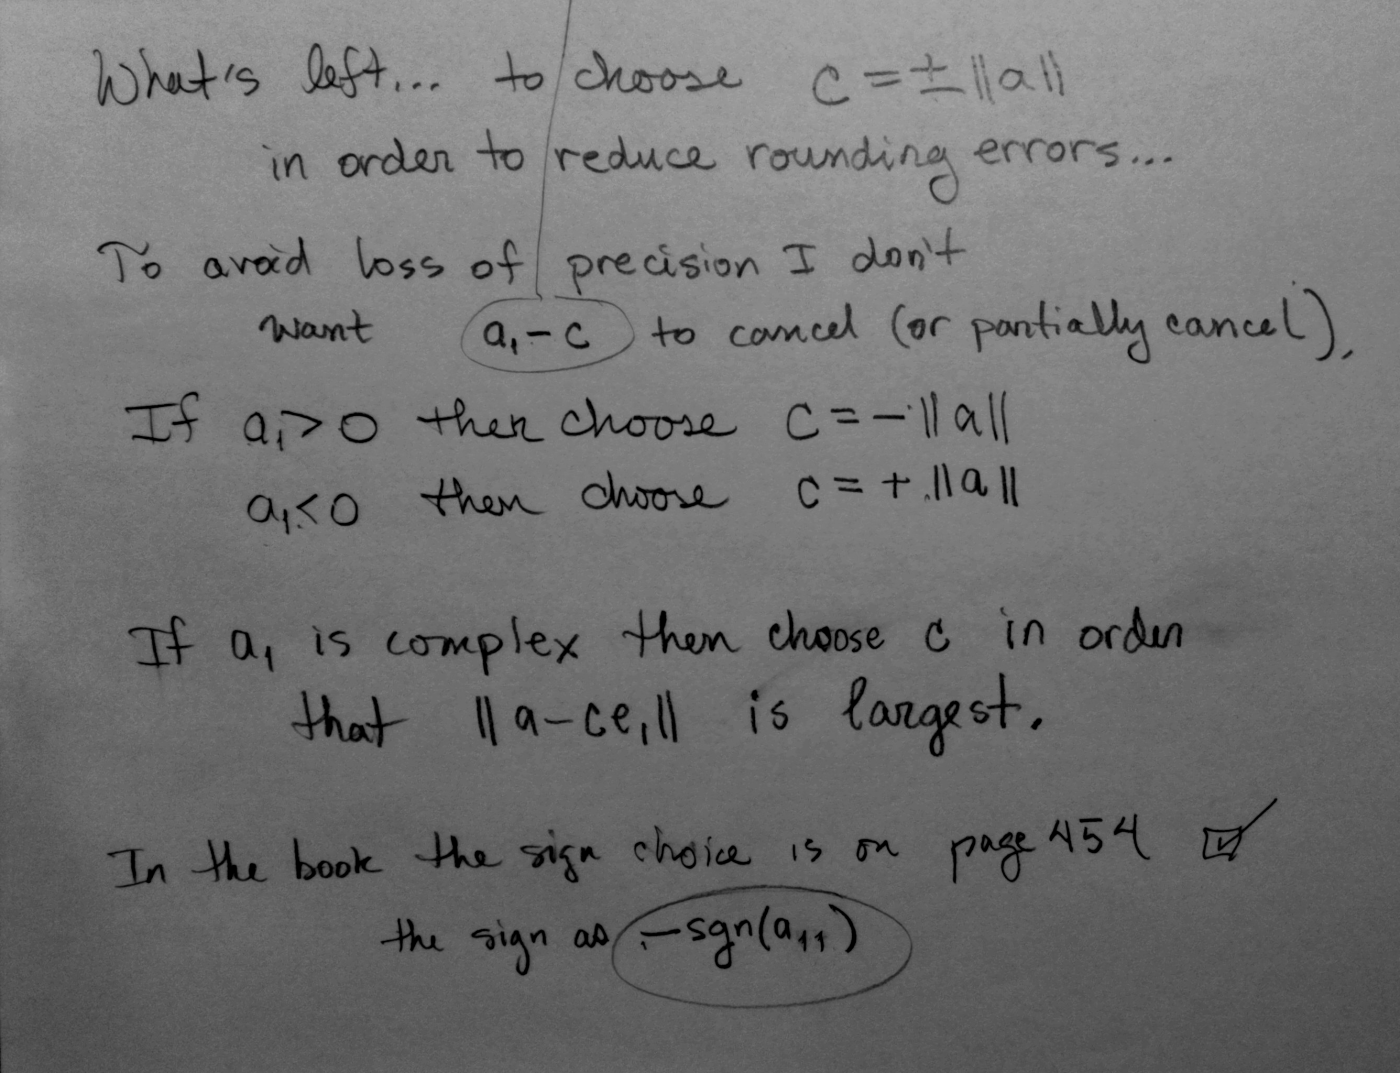 What's left... to choose c = ± ||a||
in order to reduce rounding errors...
To avoid loss of precision I don't
want a₁ - c to cancel (or partially cancel),
If a₁ > 0 then choose c = - ||a||
a₁ < 0 then choose c = + ||a||
If a₁ is complex then choose c in order
that ||a - ce₁|| is largest.
In the book the sign choice is on page 454 ☑
the sign as -sgn(a₁₁)